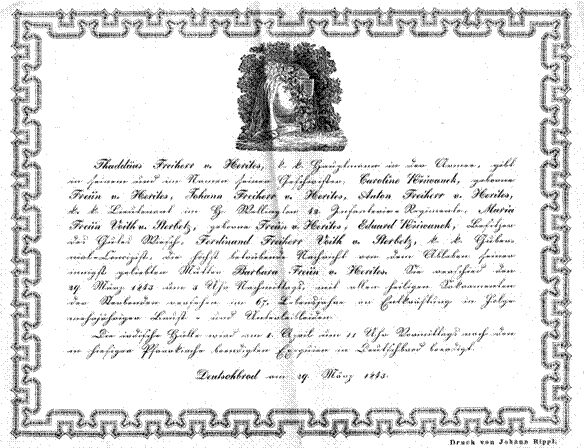 Thaddäus Freiherr v. Herites, k. k. Hauptmann in der Armee, gibt
in seinem und im Namen seiner Geschwister, Caroline geborne
Freiin v. Herites, Johann Freiherr v. Herites, Anton Freiherr v. Herites,
k. k. Lieutenant im Wellington 42. Infanterie-Regimente, Maria
Freiin Veith v. geborne Freiin v. Herites, Eduard Besitzer
des Gutes Ferdinand Freiherr Veith v. k. k. Guber-
nial-Concipist, die höchst betrübende Nachricht von dem Ableben seiner
innigst geliebten Mutter Barbara Freiin v. Herites. Sie verschied den
29. März 1843 um 3 Uhr Nachmittags, mit allen heiligen Sakramenten
der Sterbenden versehen im 67. Lebensjahre an Entkräftung in Folge
mehrjähriger Brust- und Unterleibsleiden.
Die irdische Hülle wird am 1. April um 11 Uhr Vormittags nach den
in hiesiger Pfarrkirche beendigten Exequien in Deutschbrod beerdigt.
Deutschbrod am 29. März 1843.
Druck von Johann Rippl.